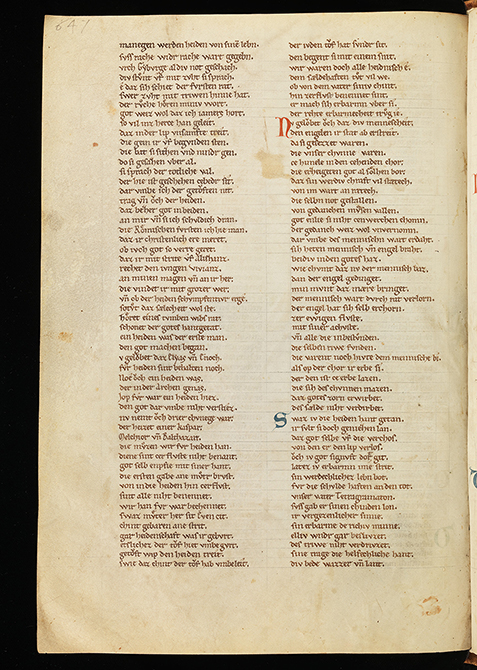 647
manegen werden heiden von sinē lebn.
svs rache widr rache wart gegebn.
vñ
div stvnt vf mit zvht si sprach.
ê daz sih schiet der fvrsten rat.
swer zvht mit triwen hinne hat.
der rvche hören minv wort.
got weiz wol daz ich iamers hort.
so vil inz herze han geleit.
daz inder lip vnsamfte treit.
die gein ir vf begvnden sten.
die bat si sitzen vnd nindr gen.
do si gesazen vber al.
si sprach der totliche val.
der hie ist geschehen
dar vmbe ich der getoften
trag vñ och der heiden.
daz bezzer got in beiden.
an mir vñ si ich schvldich dran.
die Römischen fvrsten ich hie man.
daz ir cristenlich ere meret.
ob ivch got so verre geret.
daz ir mit strite vf Alischanz.
rechet den ivngen vivianz.
an minen magen vñ an ir her.
die vindet ir mit grozer wer.
vñ ob der heiden schvmpfentivr ergê.
sotvt daz sælecheit wol ste.
hört eines tvmben wibs rat.
schonet der gotes hantgetat.
ein heiden was der erste man.
den got machen began.
v gelöbt daz Elyas vñ Enoch.
fvr heiden sint behalten noch.
Noe och ein heiden was.
der inder archen genas.
Iop fvr war ein heiden hiez.
den got dar vmbe niht verstiez.
nv nemt och drier chvnege war.
der heizet einer kaspar.
Melchior vñ Balthazar.
die mvzen wir fvr heiden han.
diene sint zer flvste niht benant.
got selb enpfie mit siner hant.
die ersten gabe ane mvter brvst.
von in die heiden hin zer flvst.
sint alle niht benennet.
wir han fvr war bechennet.
swaz mvter her sit Even zit.
chint gebaren ane strit.
gar heidenschaft was ir gebvrt.
etslichez der töf het vmbegvrt.
getöft wip den heiden treit.
swie daz chint der töf hab vmbeleit.
der ivden töf hat svnder sit.
den begent si mit einem snit.
wir waren doch alle heidnisch ê.
dem sældehaften tvt vil we.
ob von dem vater sinv chint.
hin zer flvst benennet sint.
er mach sih erbarmen vber si.
der rehte erbarmecheit trvg ie.
Nv gelöbet och daz div mennischeit.
den engelen ir stat ab erstreit.
da si gesetzet waren.
die vnser chvnne varen.
ze himele in den zehenden chor.
die erzeigeten got al solhen bor.
daz sin werdiv chraft vil stætech.
von im wart an rætech.
die selbn not gestallen.
von gedanchen mvsen vallen.
got enliez si niht ze werchen chomen.
der gedanch weiz wol vnvernomn.
dar vmbe des menneschn wart erdaht.
sih heten mennesch vñ engel braht.
beidiv in den gotes haz.
wie chvmt daz nv der mennesch baz.
dan der engel gedinget.
min mvnt daz mære bringet.
der mennesch wart dvrch rat verlorn.
der engel hat sih selb erchorn.
zer ewigen flvste.
mit siner achvste.
vñ alle die im bestvnden.
die selben triwe fvnden.
die varent noch hivte dem mennische bi.
als op der chor ir erbe si.
der den ist ze erbe lazen.
die sih des chvnnen mazen.
daz gotes zorn erwirbet.
des sælde niht verdirbet.
Swaz iv die heiden hant getan.
ir svlt si doch geniezen lan.
daz got selbe vf die verchos.
von den er den lip verlos.
och iv got signvft dort git.
latez iv erbarmen ime strit.
sin werdechlichez lebn bot.
fvr die schvlde haften an den tot.
vnser vater Tetragramaton.
svs gab er sinen chinden lon.
ir vergezzenlicher sinne.
sin erbarme de richiv minne.
elliv wndr gar besivzet.
des triwe niht verdrivzet.
sine trage die helfechliche hant.
div bede wazzer vñ lant.